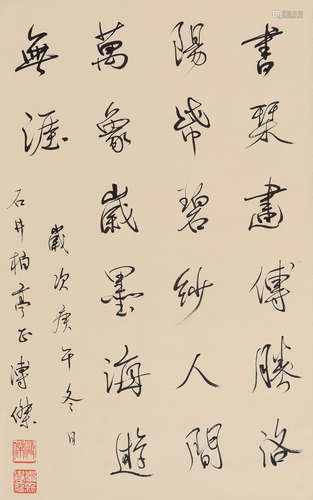 書琹畫傳勝洛
陽帋碧紗人間
萬象歲墨海遊
無涯
歲次庚午冬日
石井柏亭正溥傑